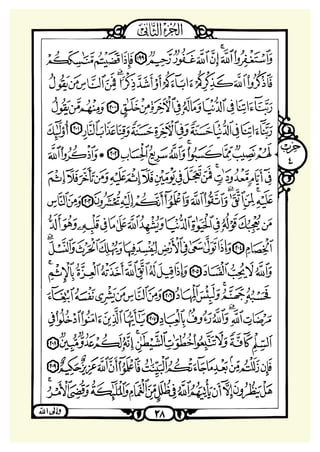 الجزء الثاني
وَٱسْتَغْفِرُوا۟ ٱللَّهَ ۚ إِنَّ ٱللَّهَ غَفُورٌ رَّحِيمٌ ١٩٩ فَإِذَا قَضَيْتُم مَّنَٰسِكَكُمْ
فَٱذْكُرُوا۟ ٱللَّهَ كَذِكْرِكُمْ ءَابَآءَكُمْ أَوْ أَشَدَّ ذِكْرًا ۗ فَمِنَ ٱلنَّاسِ مَن يَقُولُ
رَبَّنَآ ءَاتِنَا فِى ٱلدُّنْيَا وَمَا لَهُۥ فِى ٱلْءَاخِرَةِ مِنْ خَلَٰقٍ ٢٠٠ وَمِنْهُم مَّن يَقُولُ
رَبَّنَآ ءَاتِنَا فِى ٱلدُّنْيَا حَسَنَةً وَفِى ٱلْءَاخِرَةِ حَسَنَةً وَقِنَا عَذَابَ ٱلنَّارِ ٢٠١ أُو۟لَٰٓئِكَ
لَهُمْ نَصِيبٌ مِّمَّا كَسَبُوا۟ ۚ وَٱللَّهُ سَرِيعُ ٱلْحِسَابِ ٢٠٢ ۞ وَٱذْكُرُوا۟ ٱللَّهَ
حزب ٤
فِىٓ أَيَّامٍ مَّعْدُودَٰتٍ ۚ فَمَن تَعَجَّلَ فِى يَوْمَيْنِ فَلَآ إِثْمَ عَلَيْهِ وَمَن تَأَخَّرَ فَلَآ إِثْمَ
عَلَيْهِ ۚ لِمَنِ ٱتَّقَىٰ ۗ وَٱتَّقُوا۟ ٱللَّهَ وَٱعْلَمُوٓا۟ أَنَّكُمْ إِلَيْهِ تُحْشَرُونَ ٢٠٣ وَمِنَ ٱلنَّاسِ
مَن يُعْجِبُكَ قَوْلُهُۥ فِى ٱلْحَيَوٰةِ ٱلدُّنْيَا وَيُشْهِدُ ٱللَّهَ عَلَىٰ مَا فِى قَلْبِهِۦ وَهُوَ أَلَدُّ
ٱلْخِصَامِ ٢٠٤ وَإِذَا تَوَلَّىٰ سَعَىٰ فِى ٱلْأَرْضِ لِيُفْسِدَ فِيهَا وَيُهْلِكَ ٱلْحَرْثَ وَٱلنَّسْلَ ۗ
وَٱللَّهُ لَا يُحِبُّ ٱلْفَسَادَ ٢٠٥ وَإِذَا قِيلَ لَهُ ٱتَّقِ ٱللَّهَ أَخَذَتْهُ ٱلْعِزَّةُ بِٱلْإِثْمِ ۚ
فَحَسْبُهُۥ جَهَنَّمُ ۚ وَلَبِئْسَ ٱلْمِهَادُ ٢٠٦ وَمِنَ ٱلنَّاسِ مَن يَشْرِى نَفْسَهُ ٱبْتِغَآءَ
مَرْضَاتِ ٱللَّهِ ۗ وَٱللَّهُ رَءُوفٌۢ بِٱلْعِبَادِ ٢٠٧ يَٰٓأَيُّهَا ٱلَّذِينَ ءَامَنُوا۟ ٱدْخُلُوا۟ فِى
ٱلسِّلْمِ كَآفَّةً وَلَا تَتَّبِعُوا۟ خُطُوَٰتِ ٱلشَّيْطَٰنِ ۚ إِنَّهُۥ لَكُمْ عَدُوٌّ مُّبِينٌ ٢٠٨
فَإِن زَلَلْتُم مِّنۢ بَعْدِ مَا جَآءَتْكُمُ ٱلْبَيِّنَٰتُ فَٱعْلَمُوٓا۟ أَنَّ ٱللَّهَ عَزِيزٌ حَكِيمٌ ٢٠٩
هَلْ يَنظُرُونَ إِلَّآ أَن يَأْتِيَهُمُ ٱللَّهُ فِى ظُلَلٍ مِّنَ ٱلْغَمَامِ وَٱلْمَلَٰٓئِكَةُ وَقُضِىَ ٱلْأَمْرُ ۚ
٢٨
وإلى الله